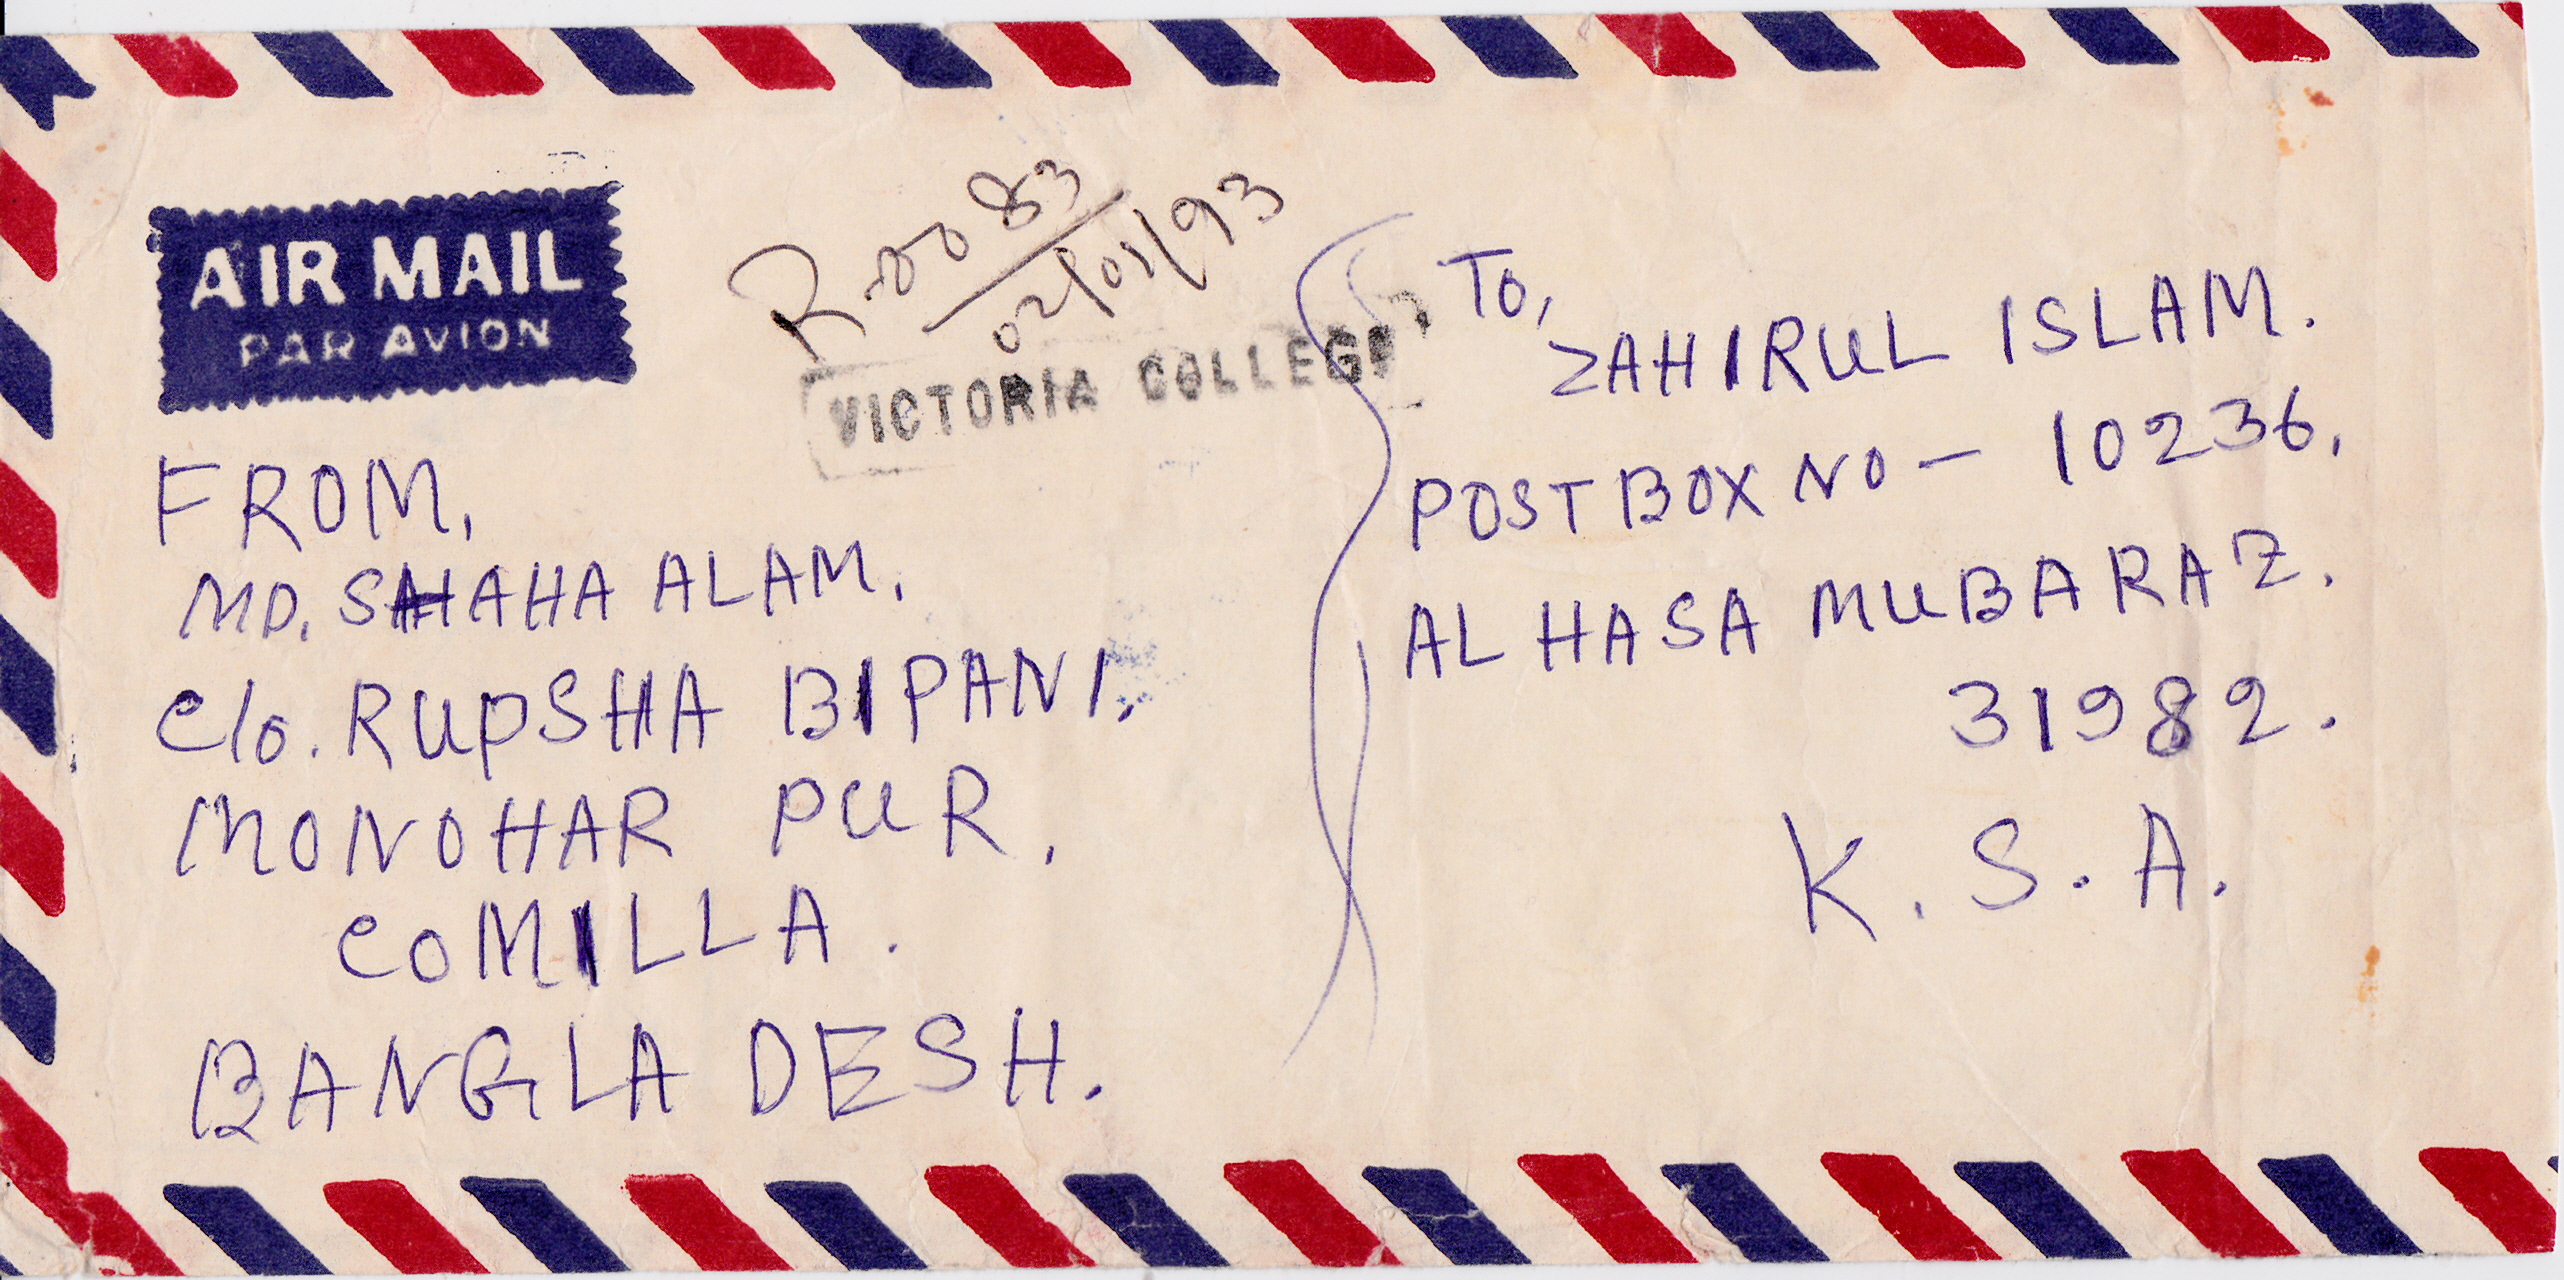 AIR MAIL
PAR AVION
R-0083
02/01/93
VICTORIA COLLEGE
FROM,
MD. SAHAHA ALAM.
C/o. RUPSHA BIPANI.
MONOHAR PUR.
COMILLA.
BANGLA DESH.
To,
ZAHIRUL ISLAM.
POST BOX NO - 10236.
AL HASA MUBARAZ.
31982.
K.S.A.